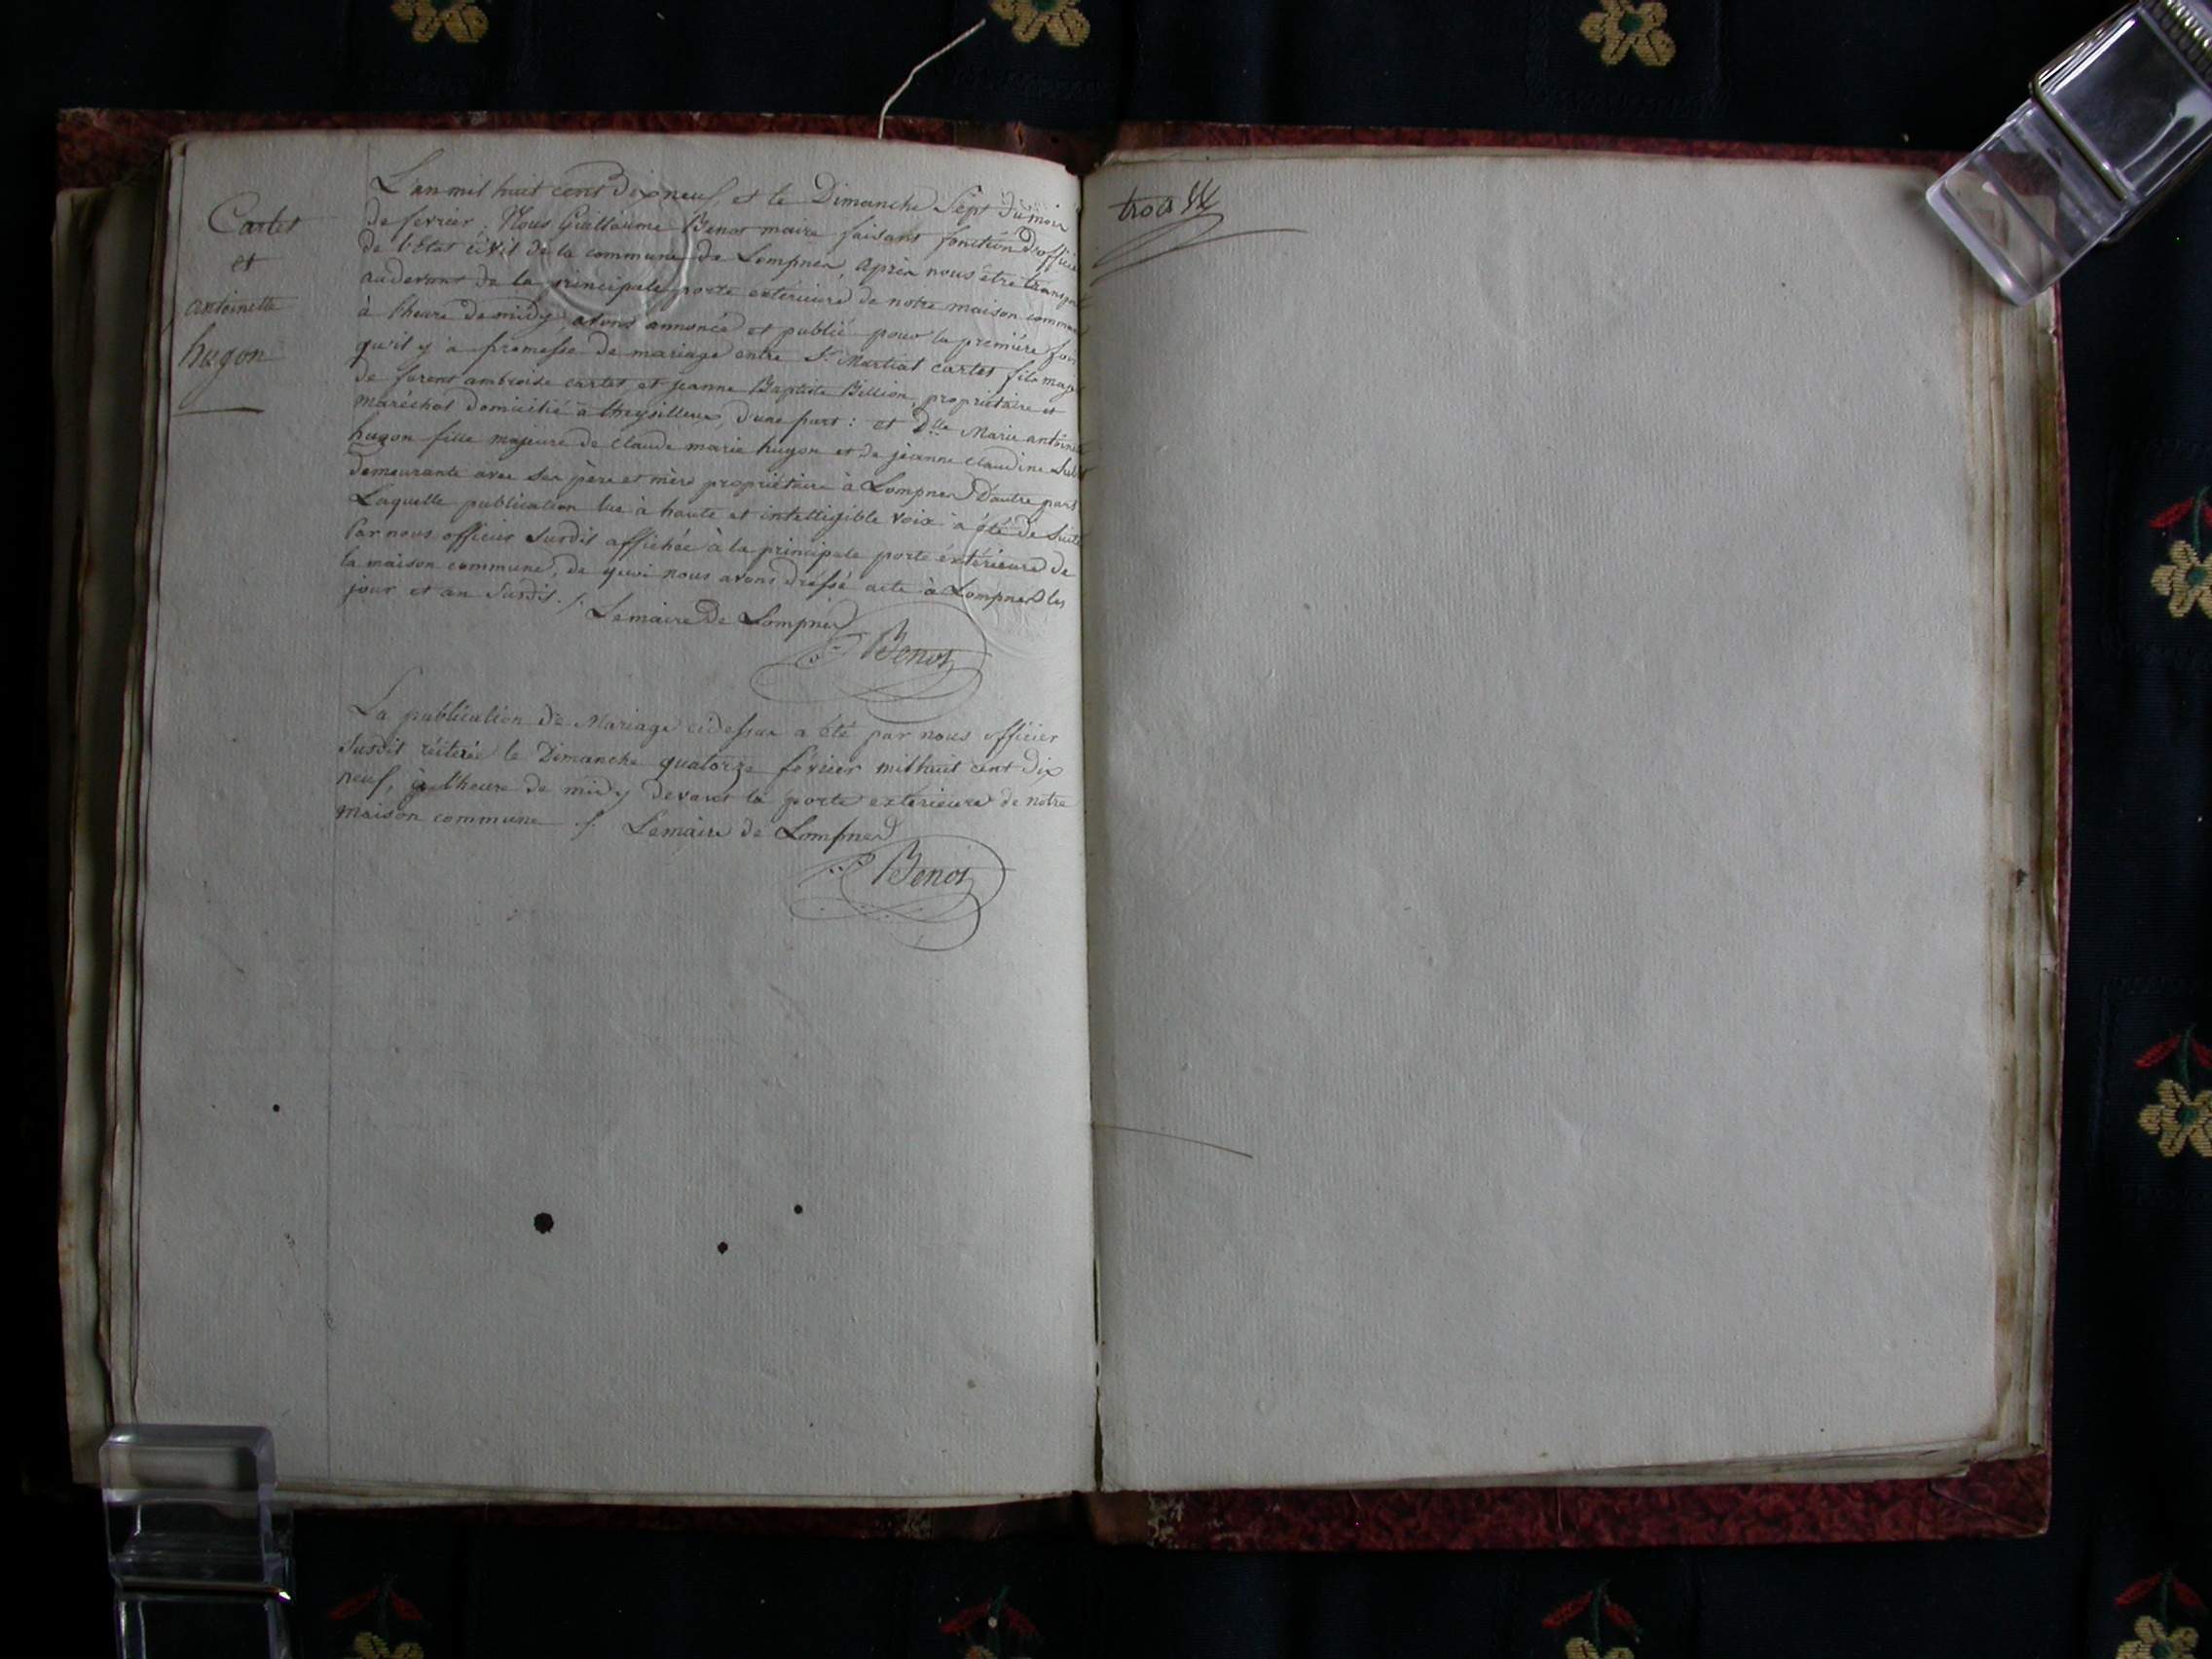 Cartet
et
antoinette
hugon
L'an mil huit cent dix neuf, et le Dimanche Sept du mois
de fevrier, Nous Guillaume Benot maire faisant fonction d'officier
de l'Etat civil de la commune de Lompnes, après nous être transporté
au devant de la principale porte extérieure de notre maison commune
à l'heure de midy, avons annoncé et publié pour la première fois
qu'il y a promesse de mariage entre Sr Martial cartet fils majeur
de furent ambroise cartet, et jeanne Baptiste Billion, propriétaire et
maréchal domicilié à d'une part : et Dlle Marie antoinette
hugon fille majeure de Claude marie hugon et de jeanne Claudine
demeurante avec ses père et mère propriétaire à Lompnes D'autre part
Laquelle publication lue à haute et intelligible voix à été de Suite
Par nous officier Susdit affichée à la principale porte éxtérieure de
la maison commune, de quoi nous avons dréssé acte à Lompnes les
jour et an Susdit ./. Lemaire de Lompnes
Benot
La publication de Mariage cidessus a été par nous officier
Susdit réitérée le Dimanche quatorze février mil huit cent dix
neuf, à l'heure de midy devant la porte exterieure de notre
maison commune ./. Lemaire de Lompnes
Benot
trois